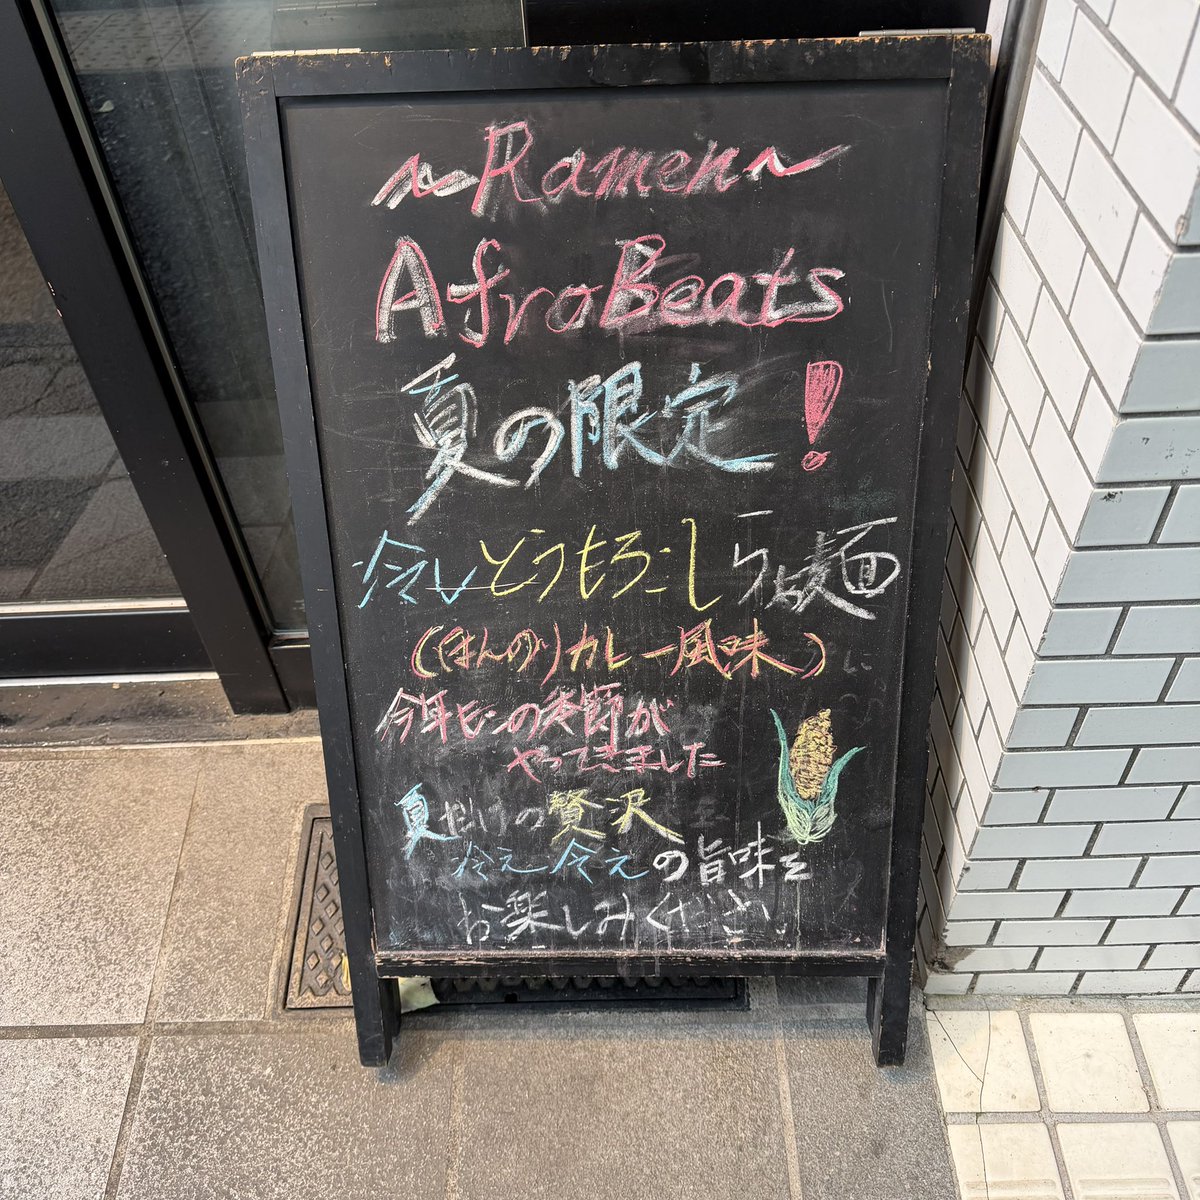 ~Ramen~
AfroBeats
夏の限定!
冷しとうもろこしらぁ麺
(ほんのりカレー風味)
今年もこの季節が
やってきました
夏だけの贅沢
冷え冷えの旨味を
お楽しみください